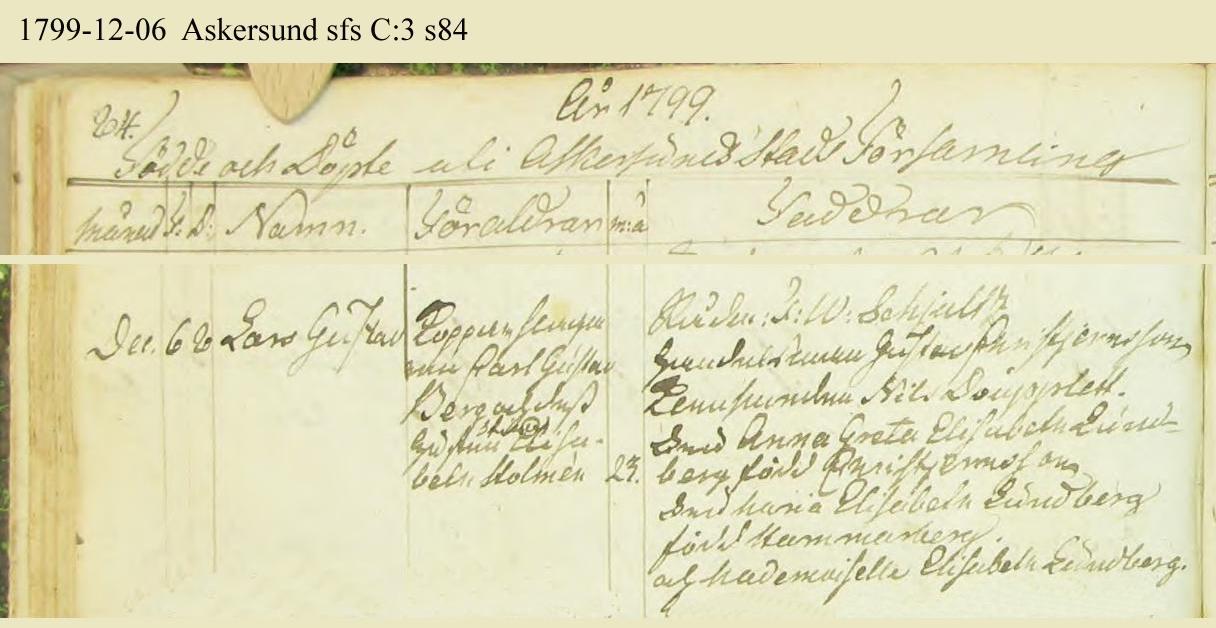 1799-12-06 Askersund sfs C:3 s84
84.
År 1799.
Födde och Döpte uti Askersunds Stads Församling
månad F: D: Namn. Föräldrar m:å Faddrar
Dec. 6 8 Lars Gustav
Kopparslagaren
Carl Gustav
Berg och dess
Hustru Elisa-
beth Holmén 23.
J: W: Schult
Handelsman Gustav Christjernsson
Nils
Anna Greta Elisabeth Lund-
berg född Christjernsson
Maria Elisabeth Lundberg
född Hammarberg.
och Mademoiselle Elisabeth Lundberg.